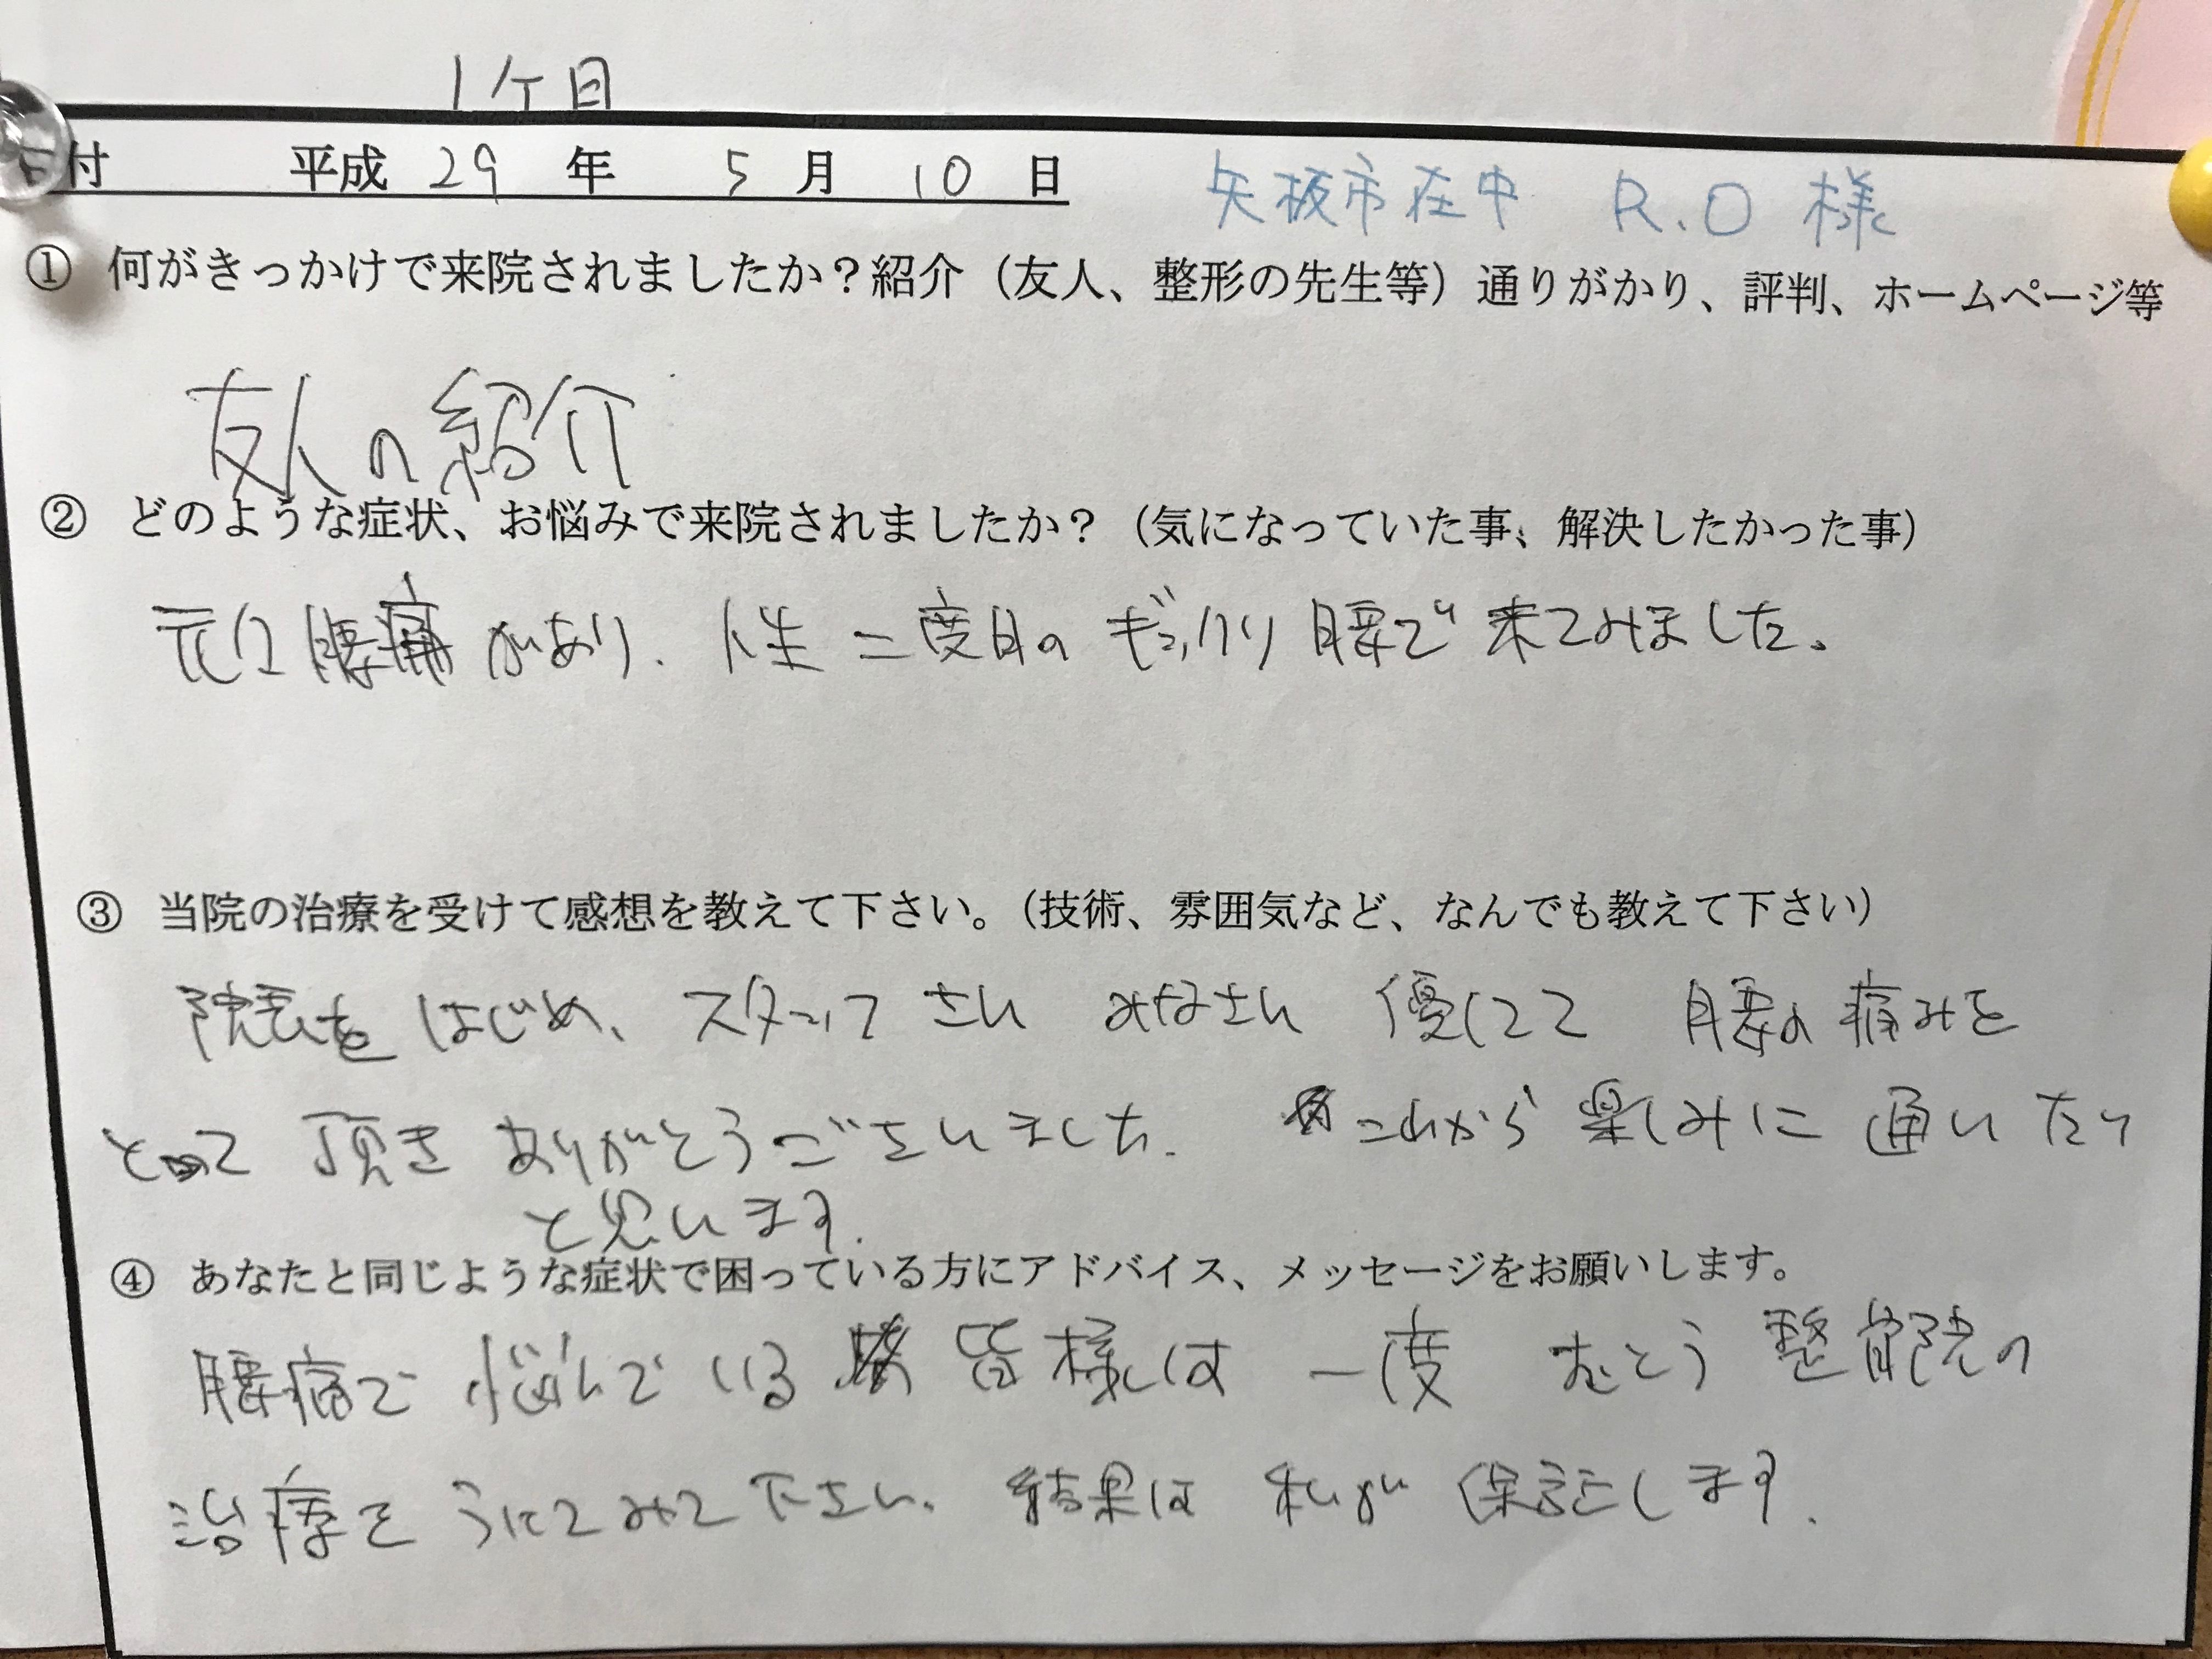 1ケ目
日付 平成 29 年 5 月 10 日 矢板市在中 R.O 様
① 何がきっかけで来院されましたか？紹介（友人、整形の先生等）通りがかり、評判、ホームページ等
友人の紹介
② どのような症状、お悩みで来院されましたか？（気になっていた事、解決したかった事）
元々腰痛があり、人生二度目のギックリ腰で来てみました。
③ 当院の治療を受けて感想を教えて下さい。（技術、雰囲気など、なんでも教えて下さい）
院長をはじめ、スタッフさん みなさん 優しくて 腰の痛みを
とって 頂き ありがとうございました。 これから楽しみに 通いたい
と思います。
④ あなたと同じような症状で困っている方にアドバイス、メッセージをお願いします。
腰痛で 悩んでいる 皆様は 一度 むとう整骨院の
治療を うけてみて下さい。 結果は 私が 保証します。